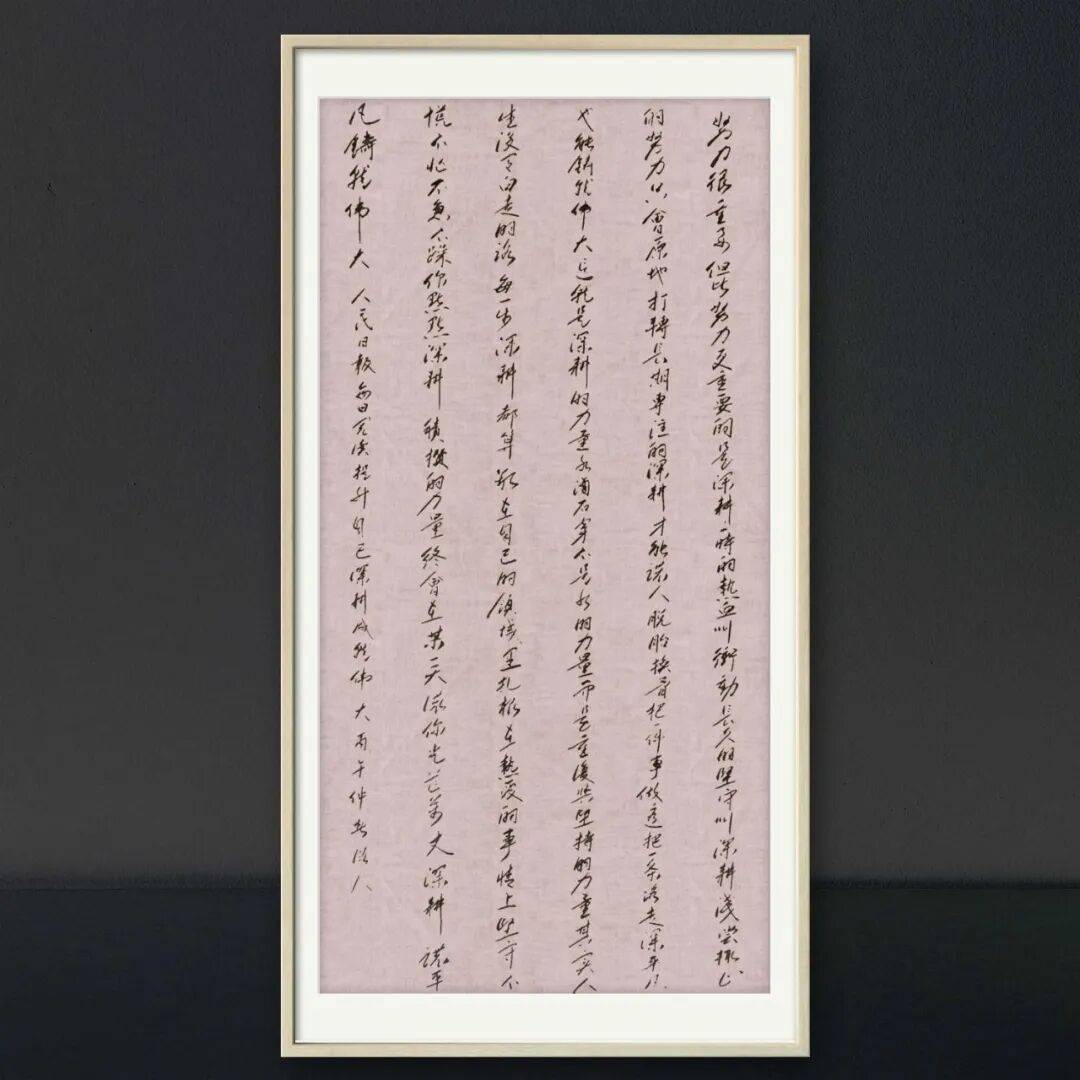 努力很重要但比努力更重要的是深耕一時的熱血叫衝動長久的堅守叫深耕淺嘗輒止
的努力只會原地打轉長期專注的深耕才能讓人脫胎換骨把一件事做透把一條路走深平凡
也能鑄就偉大這就是深耕的力量水滴石穿不是水的力量而是重復與堅持的力量其實人
生沒有白走的路每一步深耕都算數在自己的領域里扎根在熱愛的事情上堅守不
慌不忙不急不躁你默默深耕積攢的力量終會在某一天讓你光芒萬丈深耕讓平
凡鑄就偉大 人民日報每日閱讀提升自己深耕成就偉大丙午仲春人